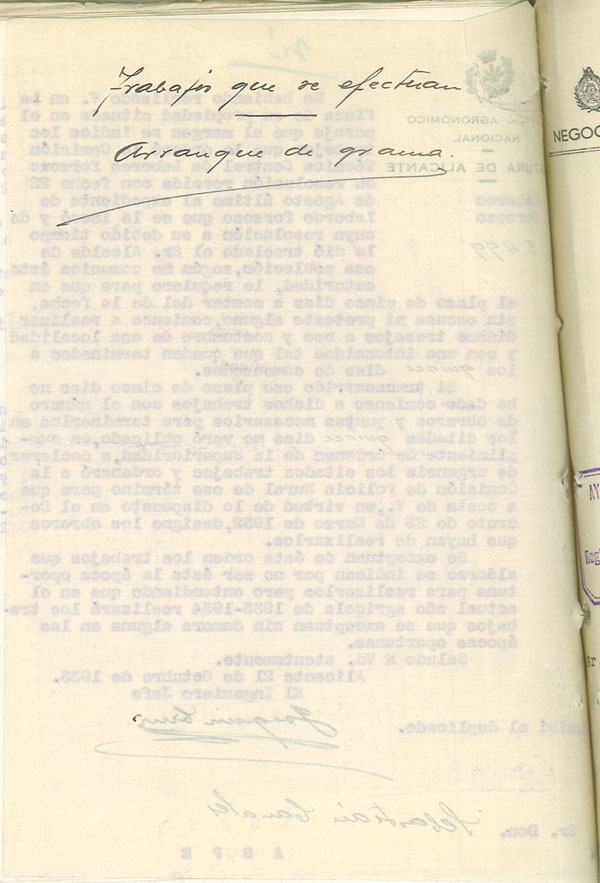 Trabajos que se efectuan
Arranque de grama.
NEGOC
AGRONÓMICO
NACIONAL
DE ALICANTE
Laboreo
forzoso
No habiendo realizado V. en la
finca de su propiedad situada en el
paraje que al margen se indica los
Comisión
Técnica Central de Laboreo Forzoso
en resolución recaida con fecha 22
de Agosto último al expediente de
laboreo forzoso que se le incoó y de
cuya resolución a su debido tiempo
le dió traslado el Sr. Alcalde de
esa población, según me comunica ésta
autoridad, le requiero para que en
el plazo de cinco dias a contar del de la fecha,
sin escusa ni pretesto alguno, comience a realizar
dichos trabajos a uso y costumbre de esa localidad
y con una intensidad tal que queden terminados a
los quince dias de comenzados.
Si transcurrido ese plazo de cinco dias no
ha dado comienzo a dichos trabajos con el número
de obreros y yuntas necesarios para terminarlos en
los citados quince dias me veré obligado, en cum-
plimiento de órdenes de la Superioridad, a declarar
de urgencia los citados trabajos y ordenaré a la
Comisión de Policia Rural de ese término para que
a costa de V., en virtud de lo dispuesto en el De-
creto de 23 de Marzo de 1932, designe los obreros
que hayan de realizarlos.
Se exceptuan de ésta orden los trabajos que
al dorso se indican por no ser ésta la época opor-
tuna para realizarlos pero entendiendo que en el
actual año agricola de 1933-1934 realizará los tra-
bajos que se exceptuan sin demora alguna en las
épocas oportunas.
Saluda a Vd. atentamente.
Alicante 21 de Octubre de 1933.
El Ingeniero Jefe
el duplicado.
Sr. Don. Sebastian
A S P E